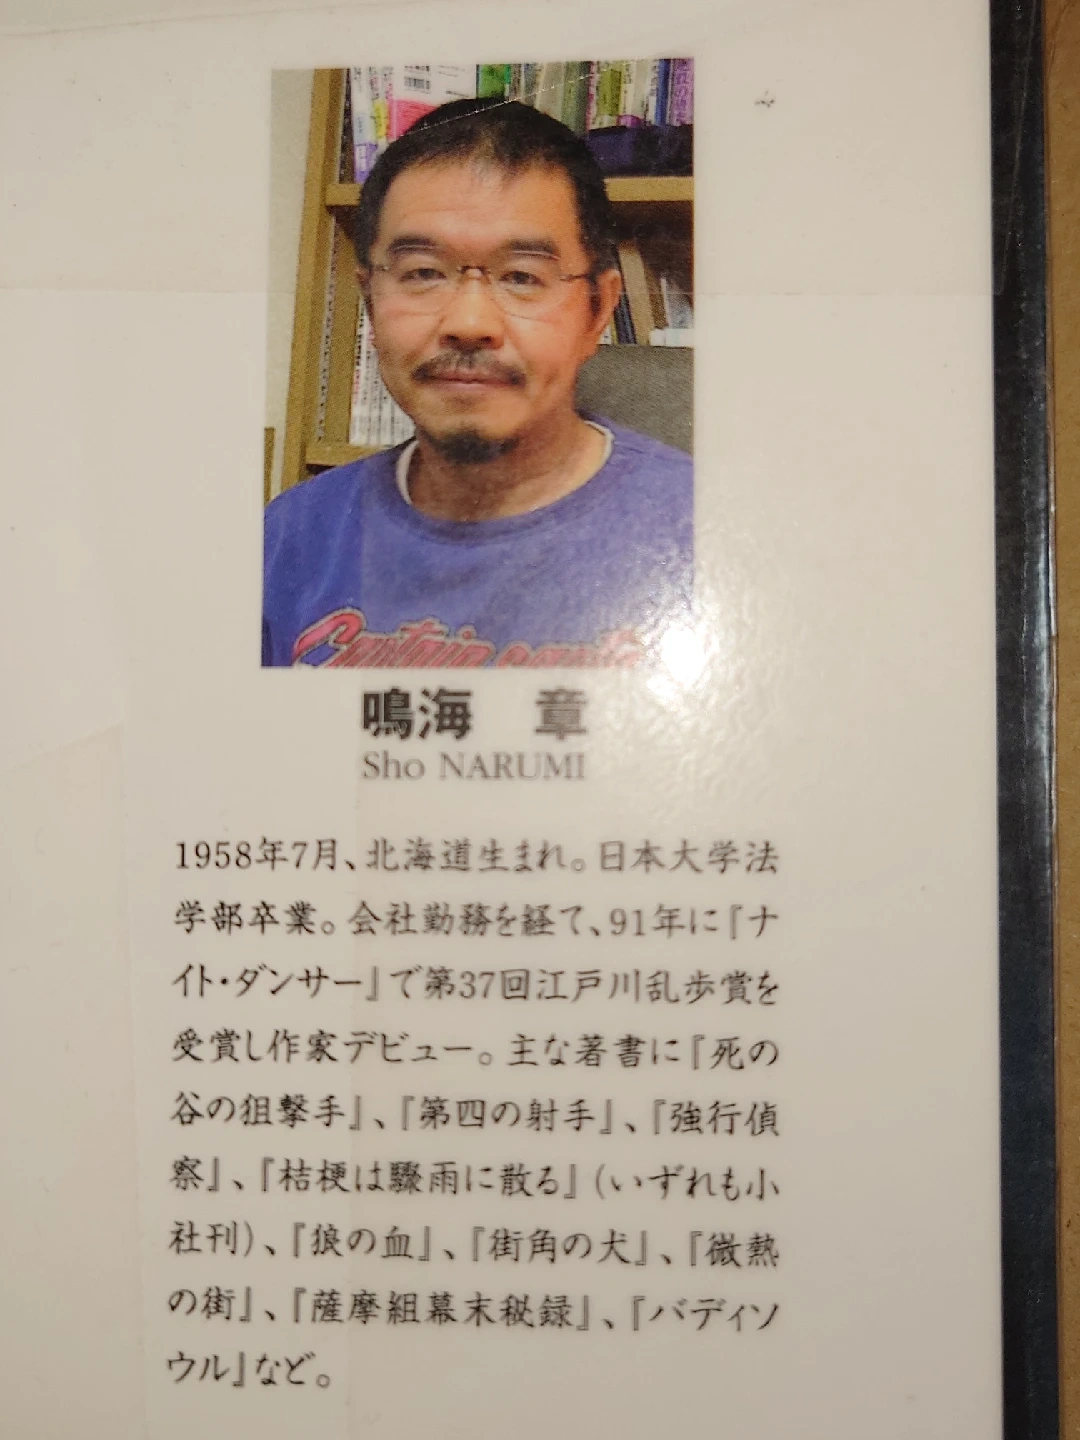 鳴海 章
Sho NARUMI
1958年7月、北海道生まれ。日本大学法
学部卒業。会社勤務を経て、91年に『ナ
イト・ダンサー』で第37回江戸川乱歩賞を
受賞し作家デビュー。主な著書に『死の
谷の狙撃手』、『第四の射手』、『強行偵
察』、『桔梗は驟雨に散る』(いずれも小
社刊)、『狼の血』、『街角の犬』、『微熱
の街』、『薩摩組幕末秘録』、『バディソ
ウル』など。